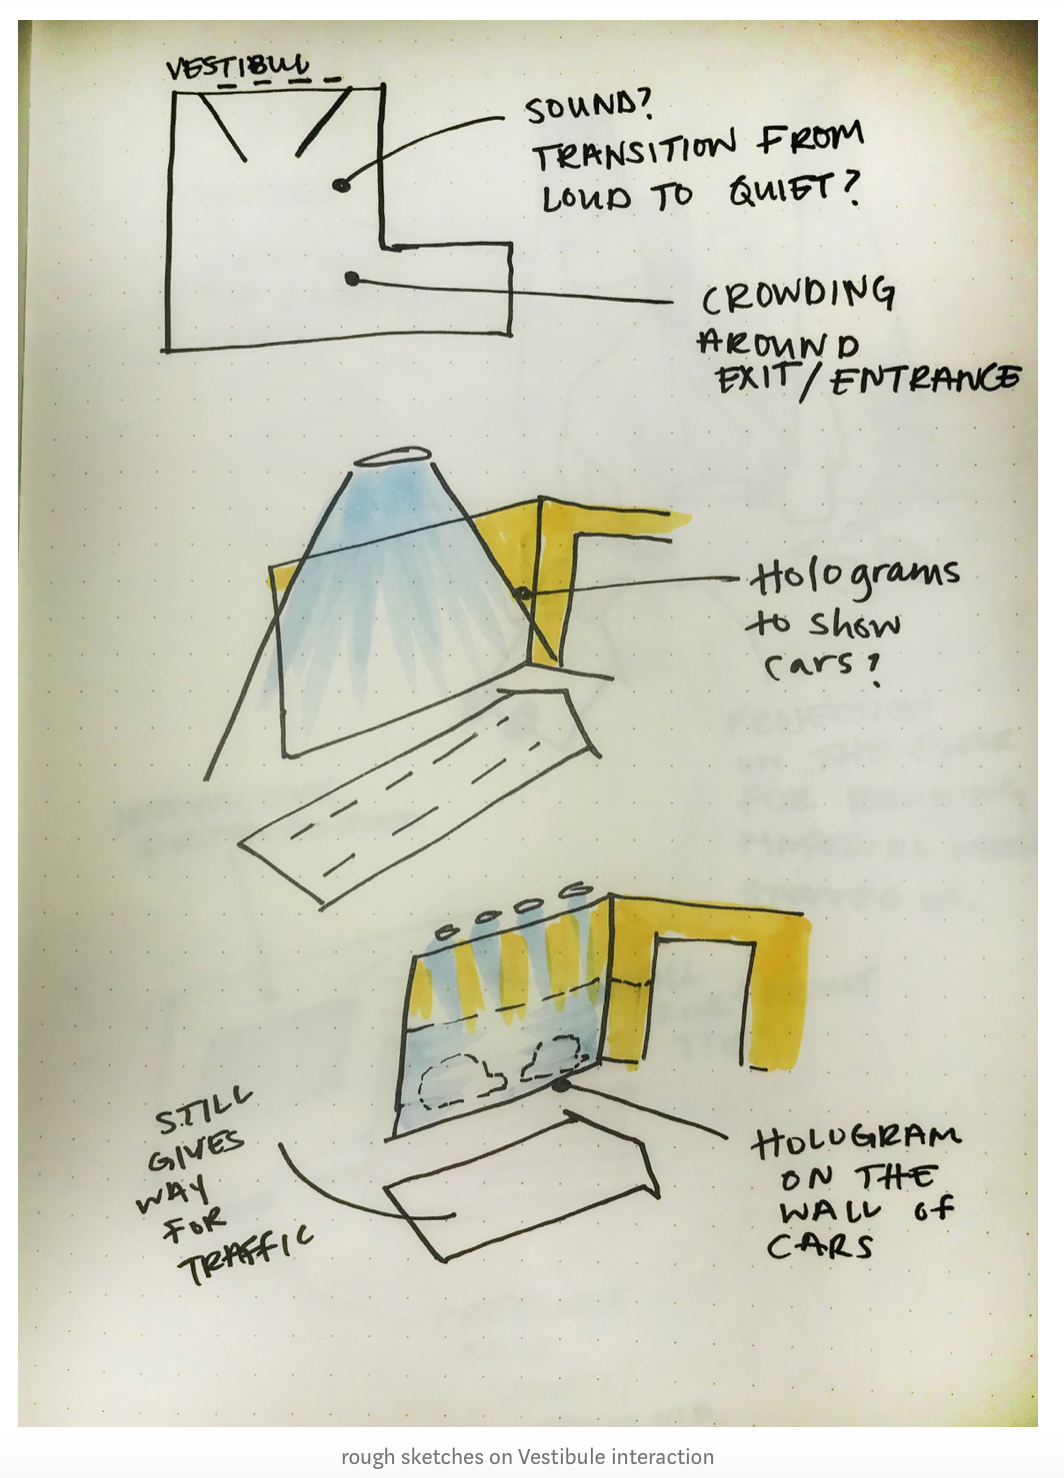 VESTIBUL
SOUND?
TRANSITION FROM
LOUD TO QUIET?
CROWDING
AROUND
EXIT/ENTRANCE
Holograms
to show
cars?
STILL
GIVES
WAY
FOR
TRAFFIC
HOLOGRAM
ON THE
WALL of
CARS
rough sketches on Vestibule interaction